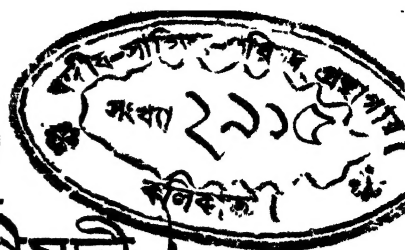 বঙ্গীয়-সাহিত্য-পরিষদ গ্রন্থাগার
সংখ্যা ২৯১৫
কলিকাতা।